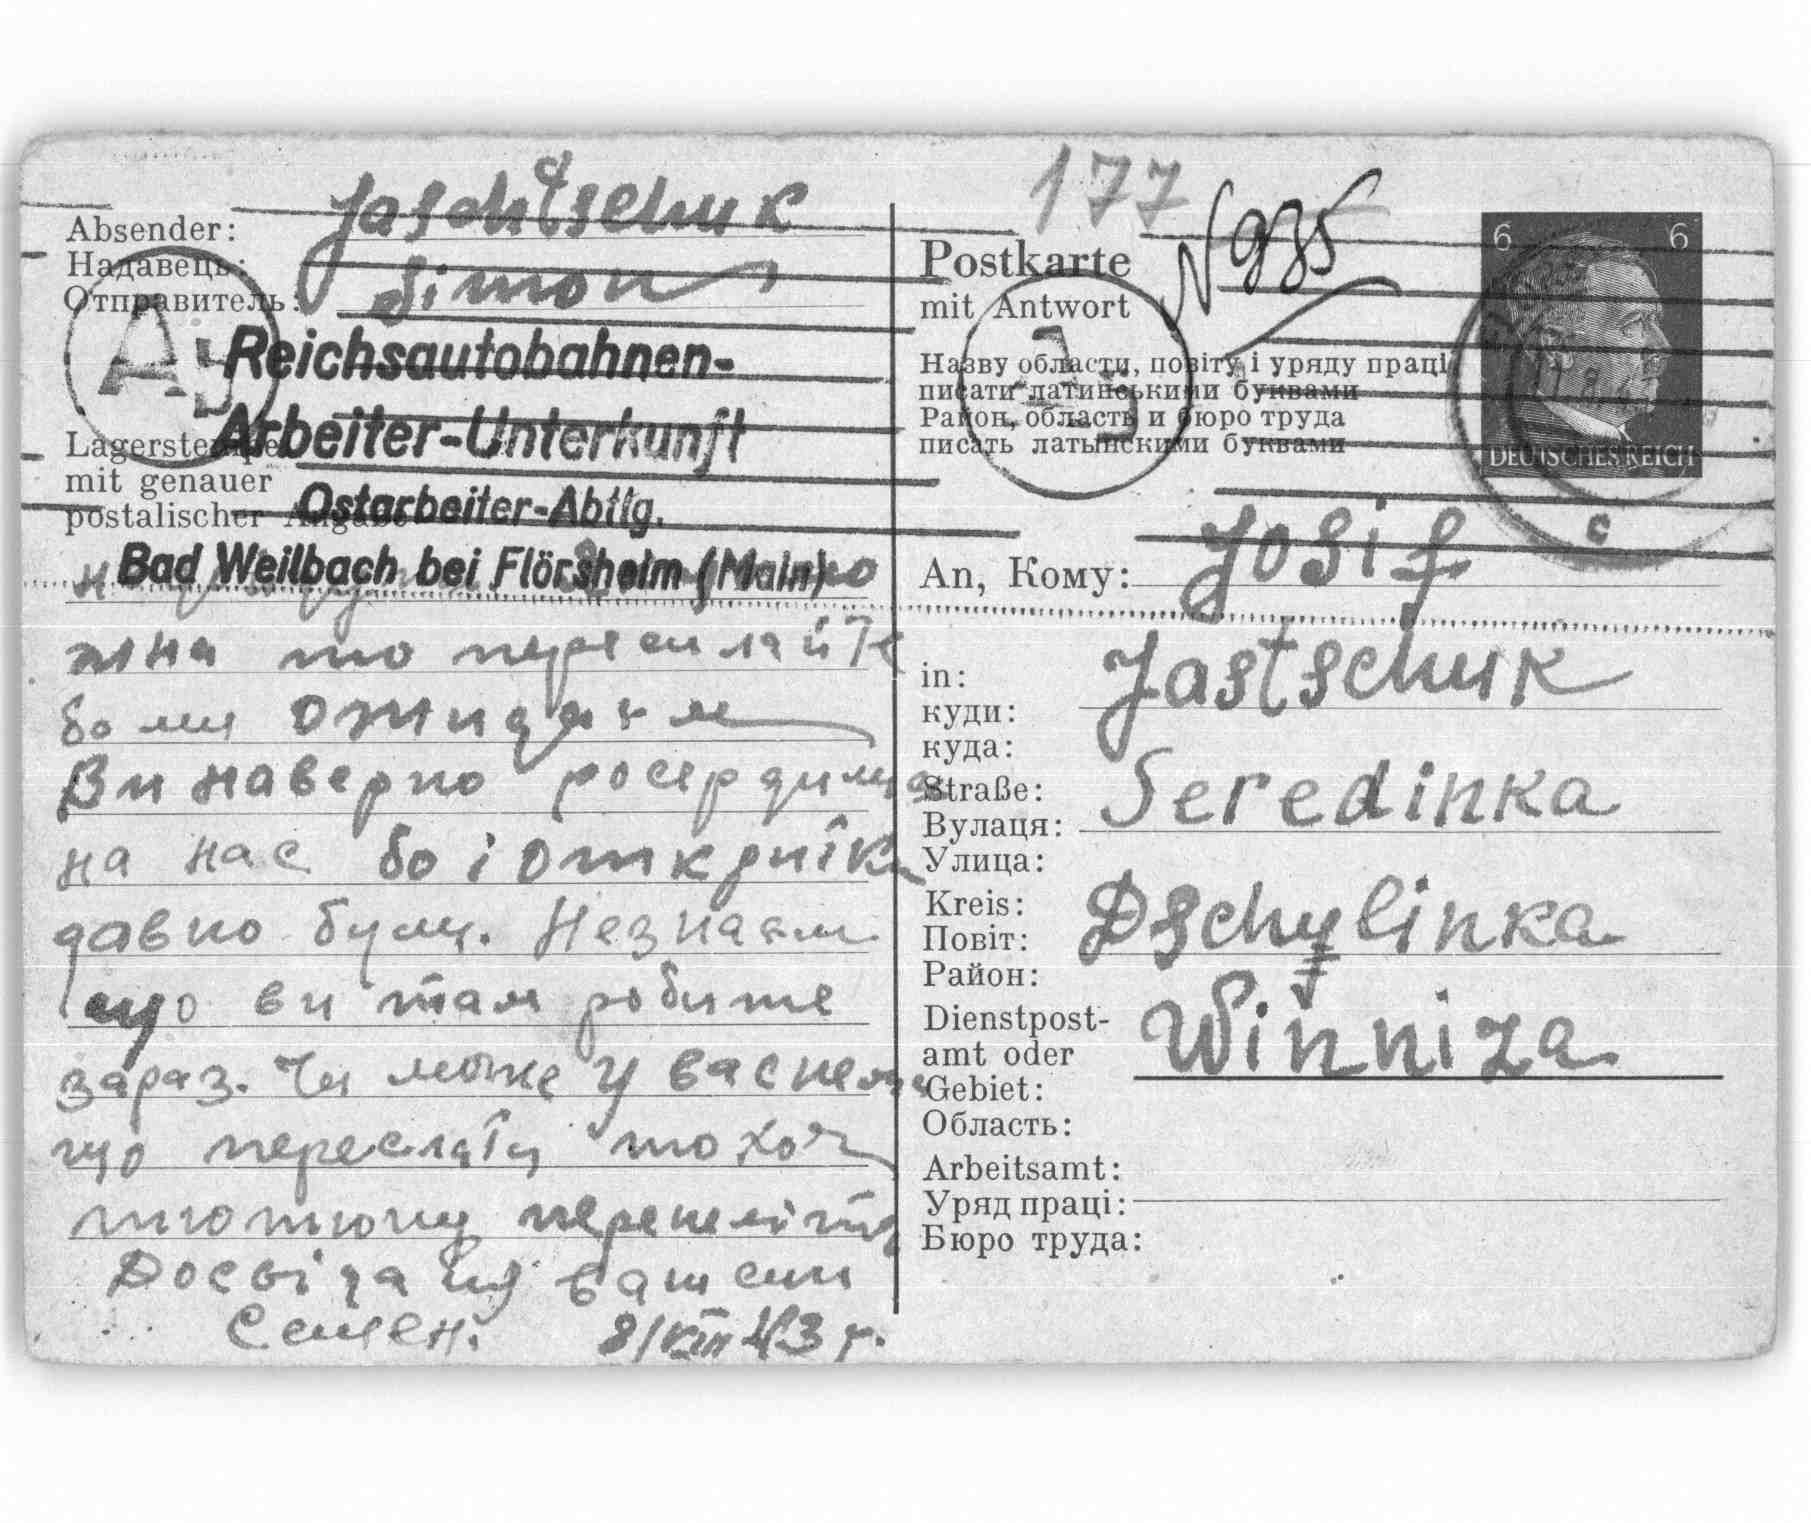 Jaschtschuk
Absender:
Надавець:
Simon
Отправитель:
Reichsautobahnen-
Arbeiter-Unterkunft
Lagerstempel
mit genauer
postalischer Angabe
Ostarbeiter-Abtlg.
Bad Weilbach bei Flörsheim (Main)
жна то пересилайте
бо ми ожидаєм
Ви наверно росердились
на нас бо і откритки
давно були. Незнаєм
що ви там робите
зараз. Чи може у вас нема
що переслати то хоч
тютюну перешліть
Досвіданя ваш син
Семен. 8/VIII 43 г.
177
N 935
Postkarte
mit Antwort
Назву области, повіту і уряду праці
писати латинськими буквами
Район, область и бюро труда
писать латынскими буквами
6 6
DEUTSCHES REICH
An, Кому: Josif
in: Jastschuk
куди:
куда:
Straße: Seredinka
Вулаця:
Улица:
Kreis: Dschulinka
Повіт:
Район:
Dienstpost- Winniza
amt oder
Gebiet:
Область:
Arbeitsamt:
Уряд праці:
Бюро труда: